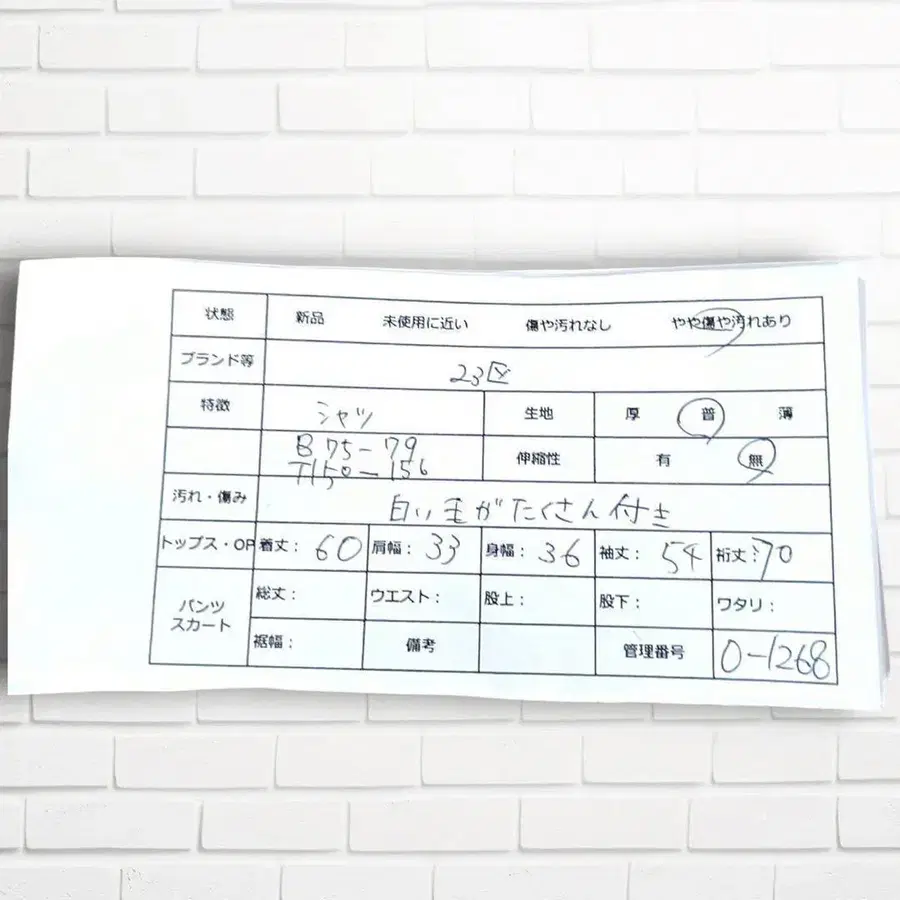 状態 新品 未使用に近い 傷や汚れなし やや傷や汚れあり
ブランド等 23区
特徴 シャツ 生地 厚 普 薄
B 75-79 伸縮性 有 無
T150-156
汚れ・傷み 白い毛がたくさん付き
トップス・OP 着丈: 60 肩幅: 33 身幅: 36 袖丈: 54 裄丈: 70
パンツ スカート 総丈: ウエスト: 股上: 股下: ワタリ:
裾幅: 備考 管理番号 0-1268